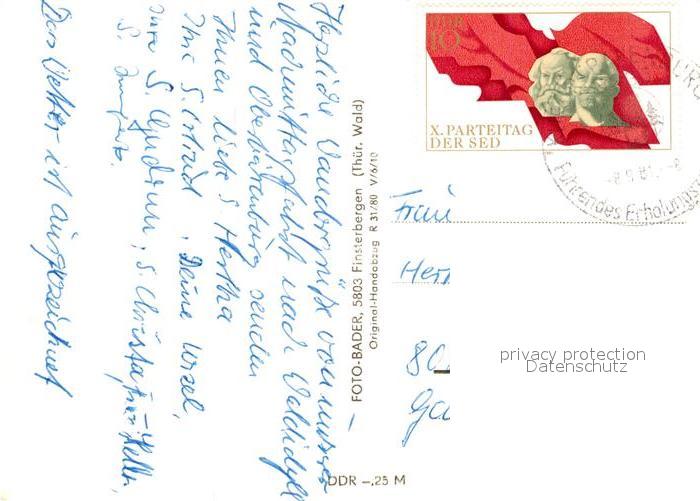 Herzliche Wandergrüße von unserer
Nachmittagsfahrt nach Waldidyll
und Oberbärenburg senden
Ihnen liebe S. Hertha
Ihre S. Astrid, Deine Ursel,
Ihre S. Gudrun, S. Christa
S.
Das Wetter ist ausgezeichnet
FOTO-BADER, 5803 Finsterbergen (Thür. Wald)
Original-Handabzug R 31/80 V/6/10
DDR –,25 M
DDR
10
X. PARTEITAG
DER SED
Führendes Erholungs
Frau
Her
80
Ga
privacy protection
Datenschutz